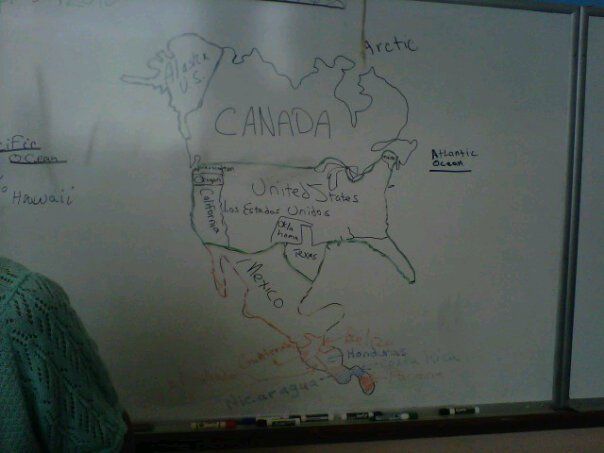 Arctic
Alaska
U.S.
CANADA
Atlantic
Ocean
Ocean
Hawaii
Oregon
California
United States
Los Estados Unidos
Okla
homa
Texas
Mexico
Belize
Honduras
Costa Rica
Panama
Nicaragua